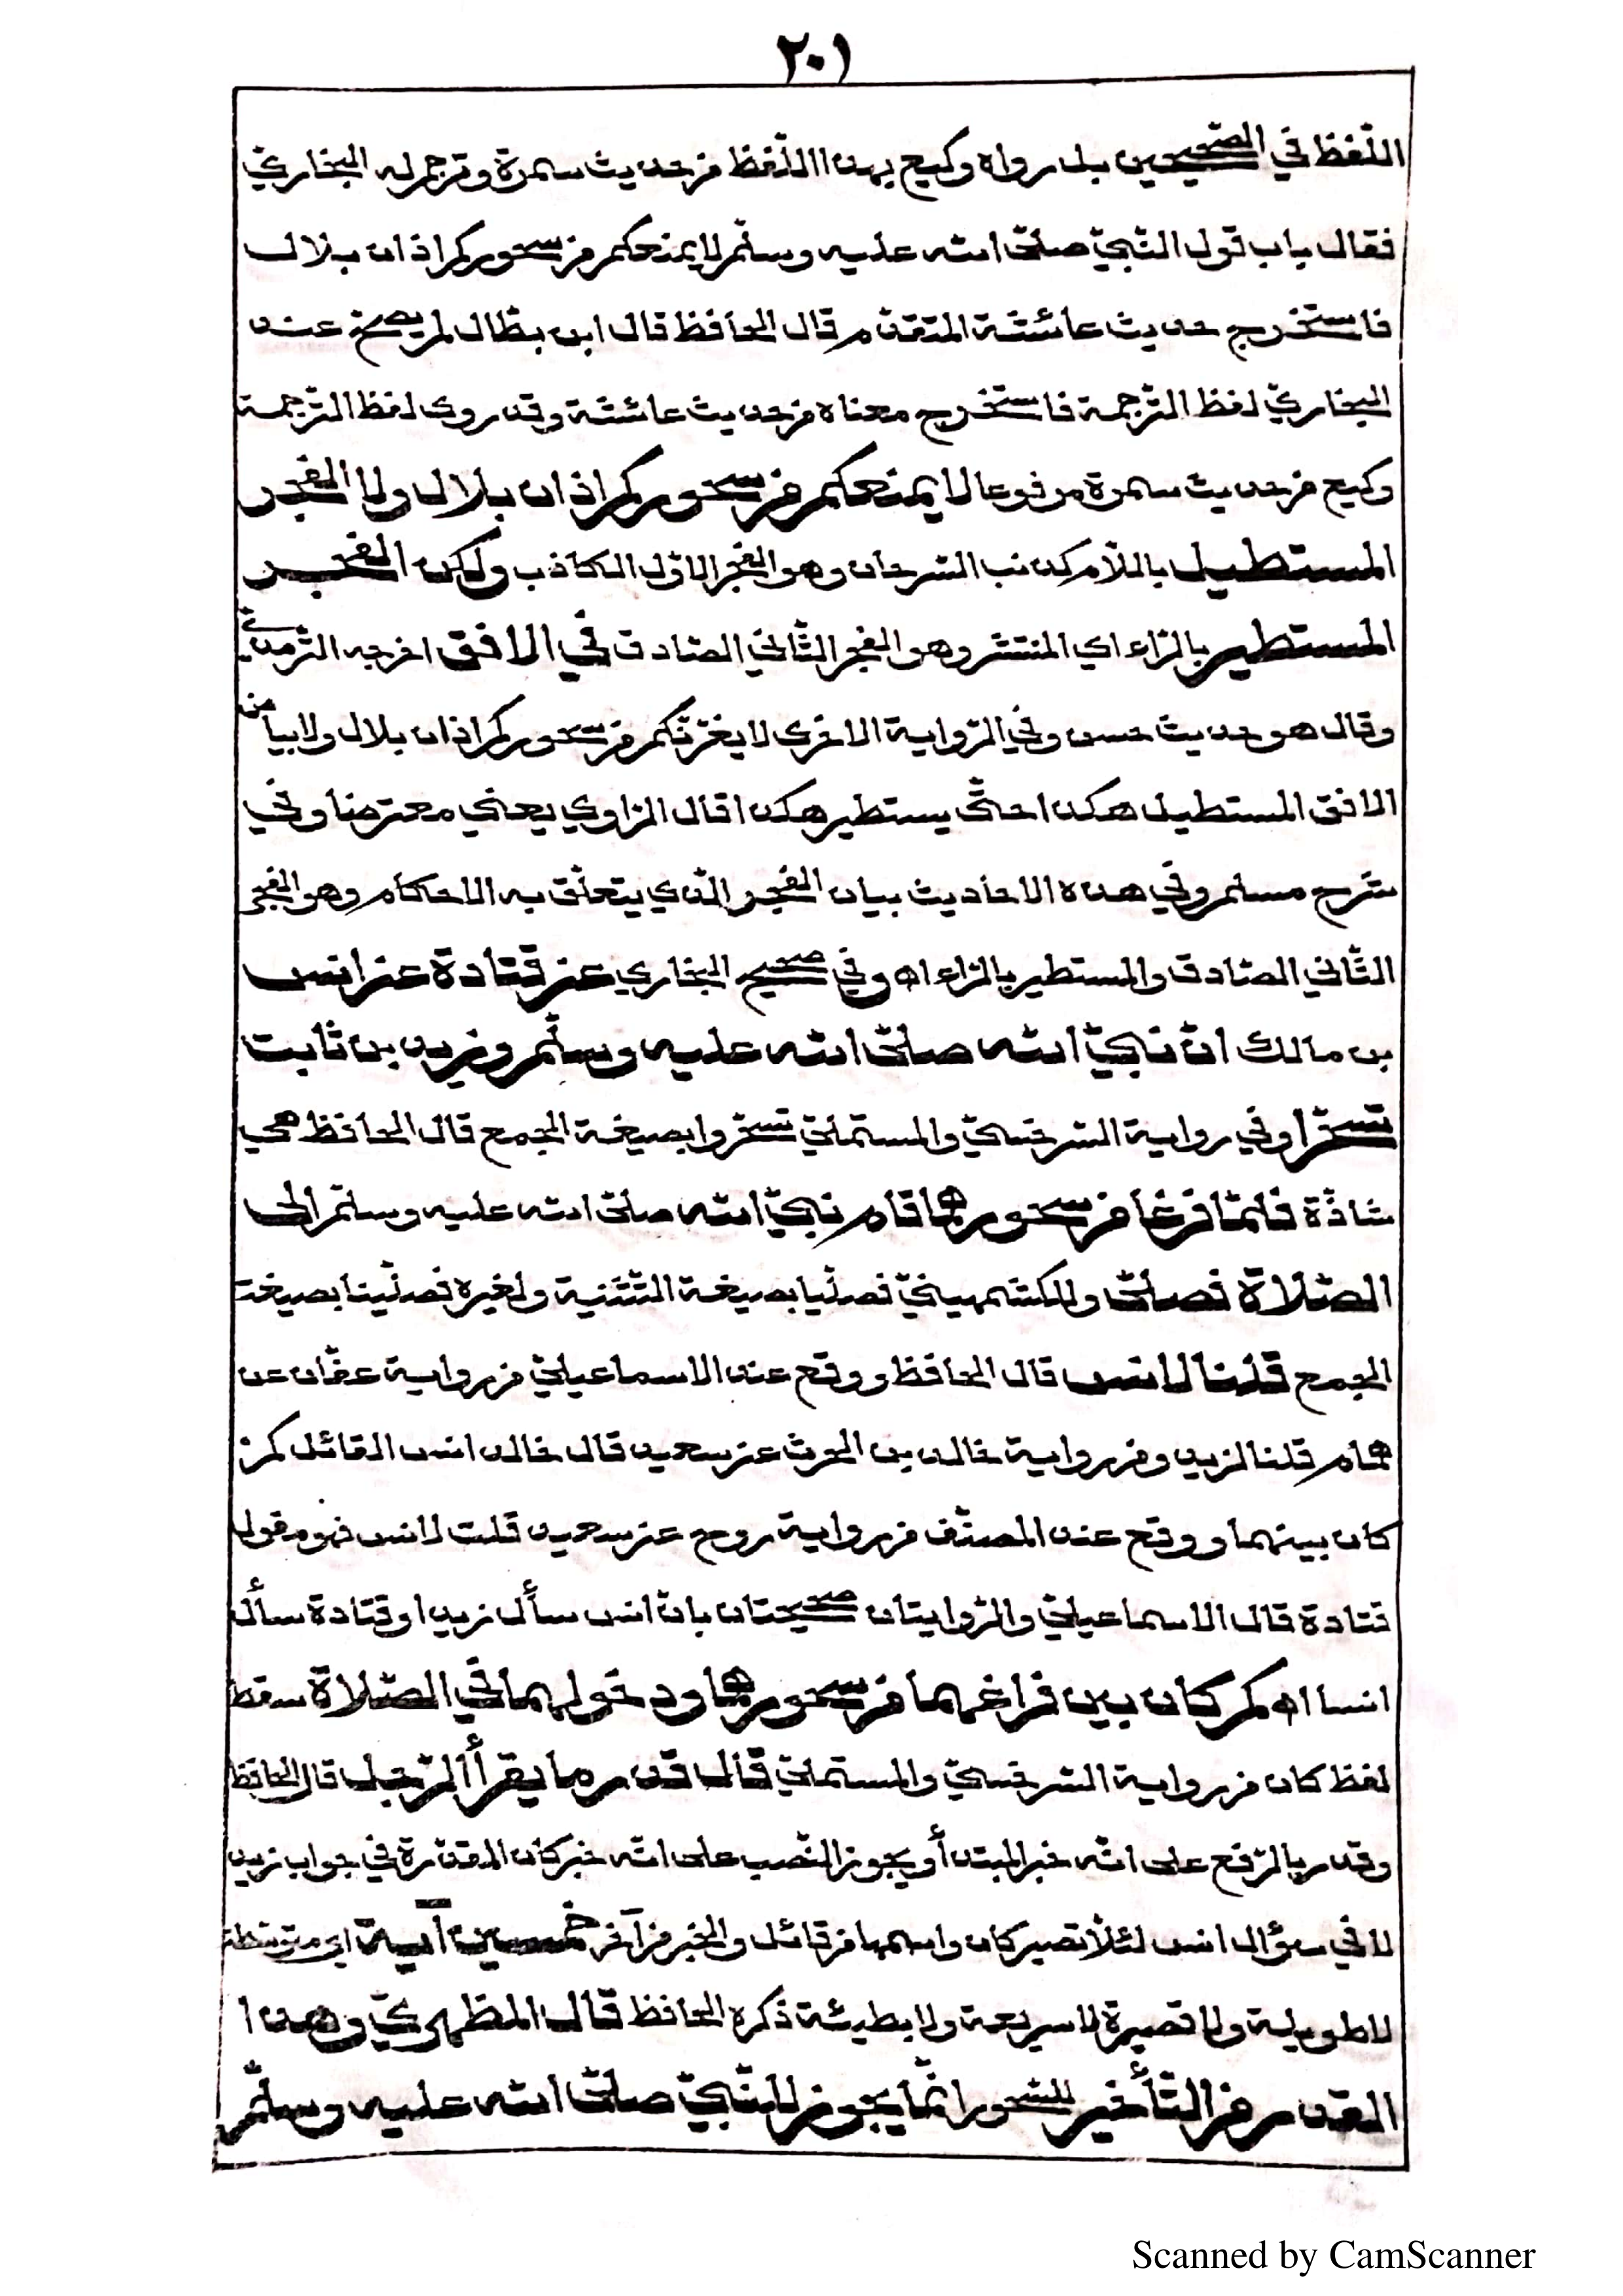 ٢٠١
اللّفظ في الصّحيحين بل رواه وكيع بهذا اللّفظ من حديث سمرة وترجم له البخاريّ
فقال باب قول النّبيّ صلّى الله عليه وسلّم لا يمنعكم من سحوركم اذان بلال
فاستخرج حديث عائشة المتقدّم قال الحافظ قال ابن بطّال لم يصحّ عند
البخاريّ لفظ التّرجمة فاستخرج معناه من حديث عائشة وقد روى لفظ التّرجمة
وكيع من حديث سمرة مرفوعا لا يمنعكم من سحوركم اذان بلال ولا الفجر
المستطيل باللّام كذنب السّرحان وهو الفجر الاوّل الكاذب ولكن الفجر
المستطير بالرّاء اي المنتشر وهو الفجر الثّاني الصّادق في الافق اخرجه التّرمذيّ
وقال هو حديث حسن وفي الرّواية الاخرى لا يغرّنّكم من سحوركم اذان بلال ولا بياض
الافق المستطيل هكذا حتّى يستطير هكذا قال الرّاوي يعني معترضا وفي
شرح مسلم وفي هذه الاحاديث بيان الفجر الّذي يتعلّق به الاحكام وهو الفجر
الثّاني الصّادق والمستطير بالرّاء اه وفي صحيح البخاري عن قتادة عن انس
بن مالك انّ نبيّ الله صلّى الله عليه وسلّم وزيد بن ثابت
تسحّرا وفي رواية السّرخسيّ والمستملي تسحّروا بصيغة الجمع قال الحافظ هي
شاذّة فلمّا فرغا من سحورهما قام نبيّ الله صلّى الله عليه وسلّم الى
الصّلاة فصلّى وللكشميهنيّ فصلّيا بصيغة التّثنية ولغيره فصلّينا بصيغة
الجمع قلنا لانس قال الحافظ ووقع عند الاسماعيليّ من رواية عفّان عن
همام قلنا لزيد ومن رواية خالد بن الحرث عن سعيد قال خالد انس القائل كم
كان بينهما ووقع عند المصنّف من رواية روح عن سعيد قلت لانس فهو مقول
قتادة قال الاسماعيليّ والرّوايتان صحيحتان بان انس سأل زيدا وقتادة سأل
انسا اه كم كان بين فراغهما من سحورهما ودخولهما في الصّلاة سقط
لفظ كان من رواية السّرخسيّ والمستملي قال قدر ما يقرأ الرّجل قال الحافظ
وقدر بالرّفع على انّه خبر المبتدأ ويجوز النّصب على انّه خبر كان المقدّرة في جواب زيد
لا في سؤال انس لئلّا تصير كان واسمها من قائل والخبر من آخر خمسين آية اي متوسّطة
لا طويلة ولا قصيرة لا سريعة ولا بطيئة ذكره الحافظ قال المظهريّ وهذا
القدر من التّأخير للسّحور انّما يجوز للنّبيّ صلّى الله عليه وسلّم
Scanned by CamScanner